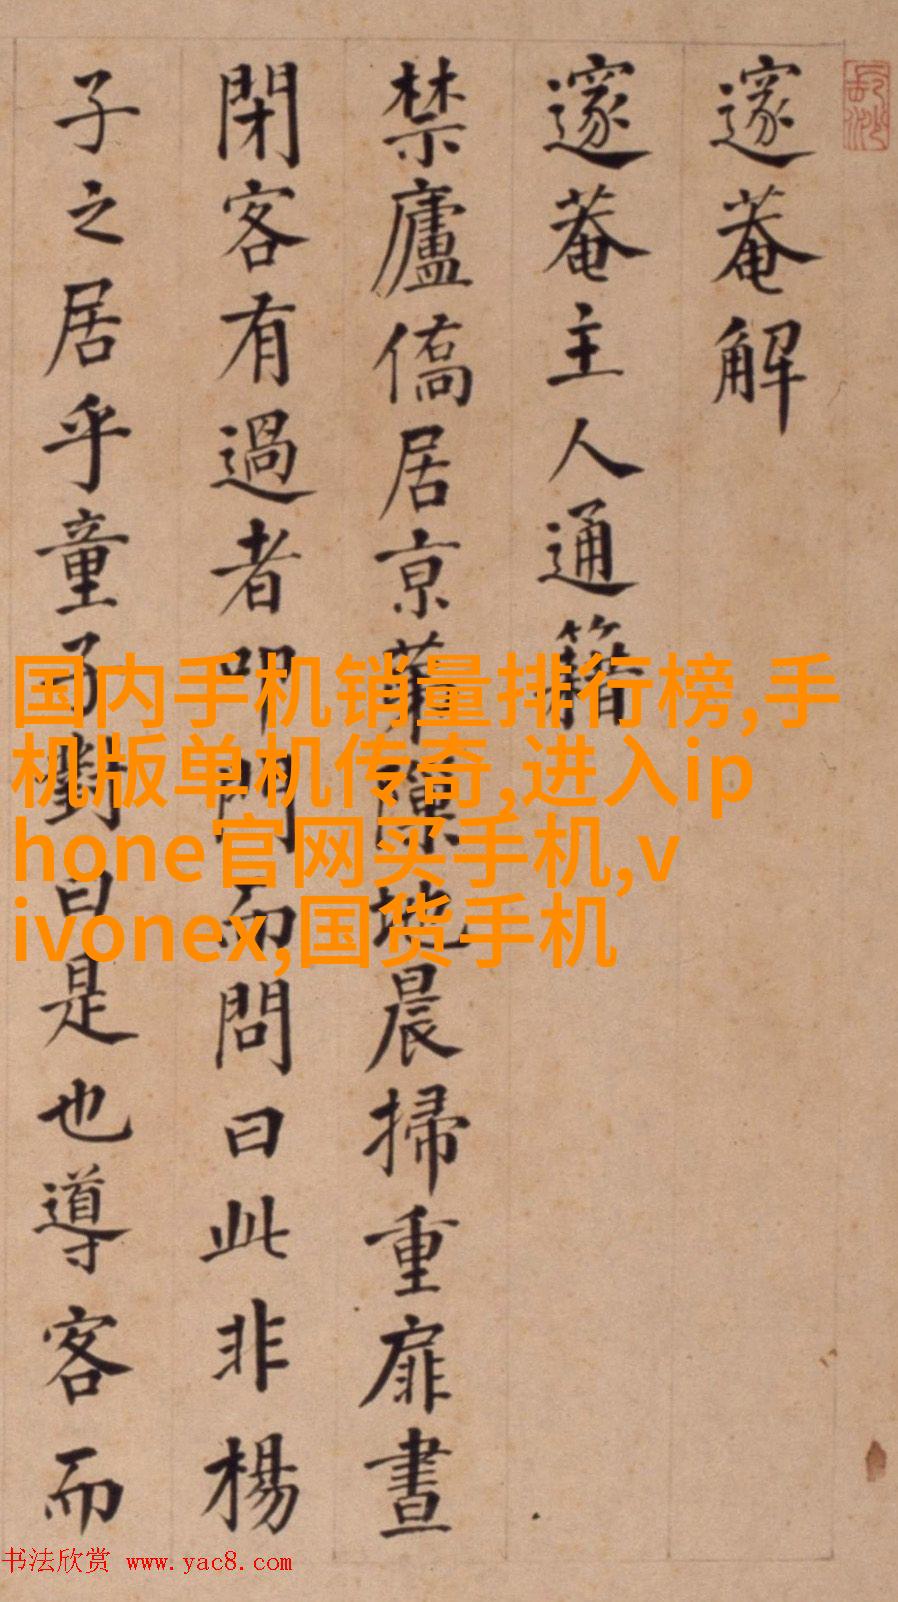 邃菴解
邃菴主人通籍
禁廬僑居京華隙地晨掃重扉晝
閉客有過者叩門而問曰此非楊
子之居乎童子對曰是也導客而
国内手机销量排行榜,手
机版单机传奇,进入ip
hone官网买手机,v
ivonex,国货手机
书法欣赏 www.yac8.com